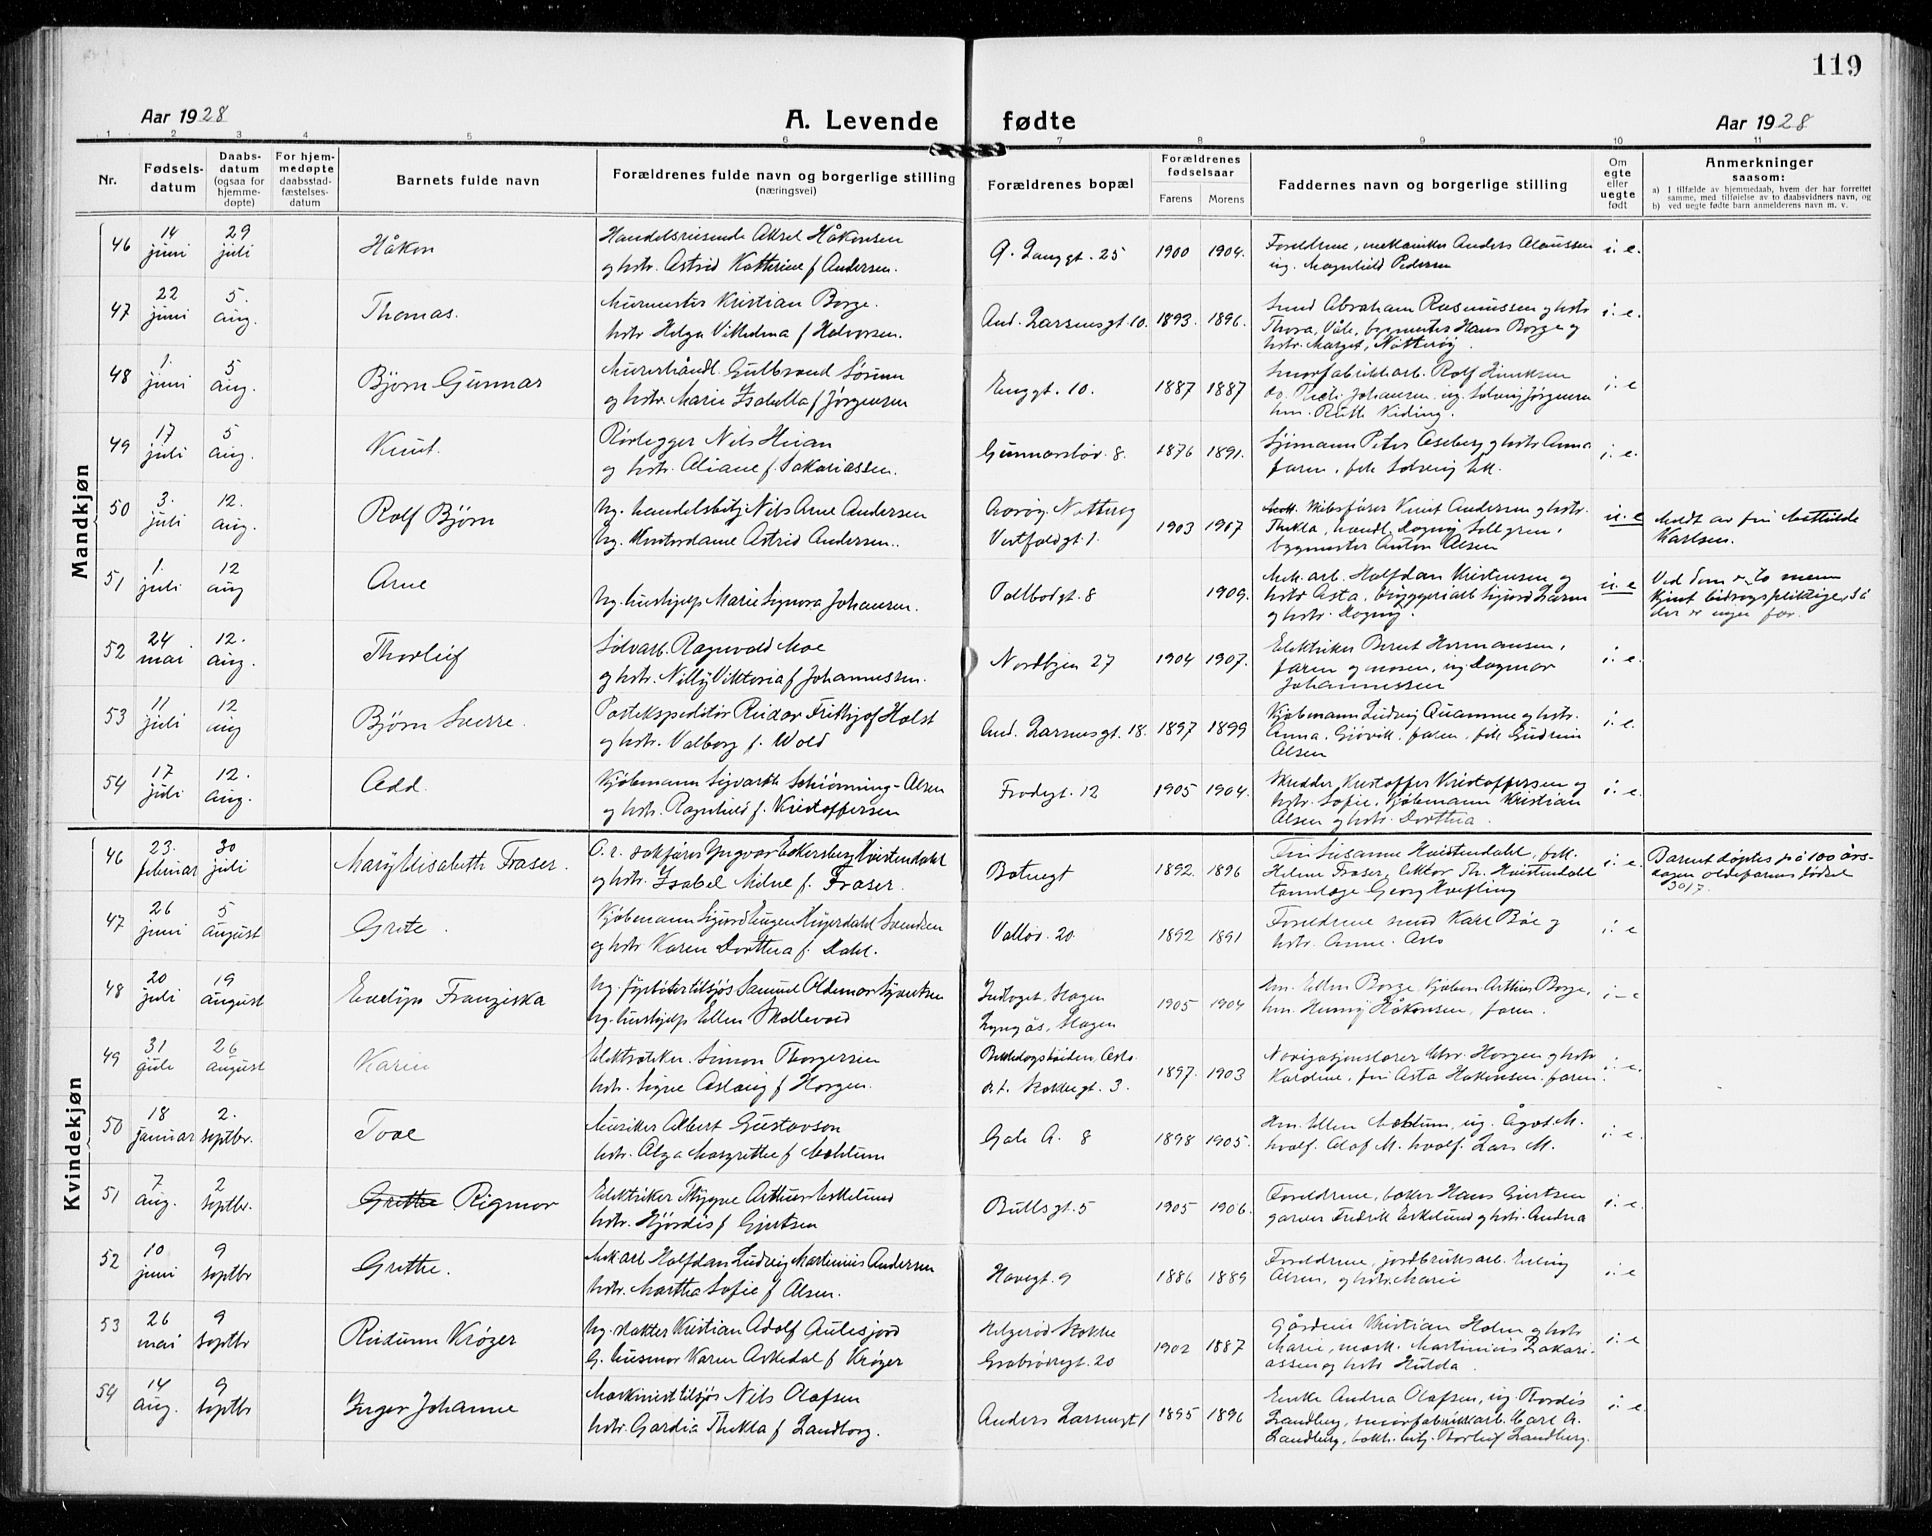 119
Aar 1928 A. Levende fødte Aar 1928
1 2 3 4 5 6 7 8 9 10 11
Nr. Fødselsdatum Daabsdatum (ogsaa for hjemmedøpte) For hjemmedøpte daabsstadfæstelsesdatum Barnets fulde navn Forældrenes fulde navn og borgerlige stilling (næringsvei) Forældrenes bopæl Forældrenes fødselsaar Farens Morens Faddernes navn og borgerlige stilling Om egte eller uegte født Anmerkninger saasom:
a) I tilfælde av hjemmedaab, hvem der har forrettet samme, med tilføielse av to daabsvidners navn, og
b) ved uegte fødte barn anmelderens navn m. v.
Mandkjøn
46 14 juni 29 juli Håkon Handelsreisende Aksel Håkonsen
og hstr. Astrid Kathrine f Andersen. Langgt. 25 1900 1904. Foreldrene, mekaniker Anders
ug. Magnhild Pedersen i. e.
47 22 juni 5. aug. Thomas. Murmester Kristian Borge.
hstr. Helga f Halvorsen. And. Larsensgt. 10. 1893. 1896. Smed Abraham Rasmussen og hstr
Thora, Våle, bygmester Hans Borge og
hstr. Marget, Nøtterøy. i. e.
48 1. juni 5 aug. Bjørn Gunnar Murerhåndl. Gulbrand Sørum
og hstr. Marie Isabella f Jørgensen Enggt. 10. 1887 1887 Smørfabrikkarb. Rolf Henriksen
do. Johansen. ug. Solveig Jørgensen
hm. Ruth i. e
49 17 juli 5 aug. Knut. Rørlegger Nils
og hstr. f. Sakariassen. Gunnarsbøv. 8. 1876 1891. Sjømann Peter Aseberg og hstr Anna
faren, frk Solveig i. e.
50 3. juli 12. aug. Rolf Bjørn Ug. handelsbetj. Nils Arne Andersen
Ug. Kontordame Astrid Andersen. Nøtterøy
Vestfoldgt. 1. 1903 1907 Skibsfører Knut Andersen og hstr.
Thekla, handl. Dagny
bygmester Anton Olsen u. e Meldt av frk
Karlsen.
51 1. juli 12 aug Arne Ug. hushjelp Marie Signora Johansen. Tollbodgt. 8 1909. Mek. arb. Halfdan Kristensen og
hstr Asta, bryggeriarb Sigurd Larsen
og hstr. Dagny u. e Ved dom er to menn
kjent bidragspliktige, så
der er ingen far.
52 24 mai 12. aug. Thorleif Sølvarb. Ragnvald Moe
og hstr. Nilly Viktoria f Johannessen. Nordbyen 27 1904 1907. Elektriker Bernt Hermansen,
faren og moren, ug Dagmar
Johannessen i. e.
53 11 juli 12 aug Bjørn Sverre. Postekspeditør Reidar Fridtjof Holst
og hstr. Valborg f. Wold And. Larsensgt. 18. 1897 1899 Kjøbmann Ludvig Quamme og hstr.
Anna, Gjøvik, faren, frk Gudrun
Olsen i. e.
54 17 juli 12. aug. Odd. Kjøbmann Sigvarth Schiønning-Olsen
og hstr. Ragnhild f. Kristoffersen Frodegt. 12 1905 1904. Skredder Kristoffer Kristoffersen og
hstr. Sofie, Kjøbmann Kristian
Olsen og hstr. Dorthea. i. e.
Kvindekjøn
46 23. februar 30 juli Mary Elisabeth Fraser. O. r. sakfører Yngvar Eckersberg Hvistendahl
og hstr. Isabel Milne f. Fraser. 1892. 1896 Fru Susanne Hvistendahl, frk.
Helene Fraser, lektor Th. Hvistendahl
tannlæge Georg i. e Barnet døptes på 100 års-
dagen oldefarens fødsel
30/7.
47 26 juni 5 august Grete. Kjøbmann Sigurd Eugen Heyerdahl Svendsen
og hstr. Karen Dorthea f. Dahl. Valløv. 20 1892 1891 Foreldrene smed Karl Bøe og
hstr. Anne. Oslo i. e
48 20 juli 19 august Evelyn Franziska Ug. fyrbøter tilsjøs Samuel Oldemar Syvertsen
Ug. hushjelp Ellen Skallevold Slagen
Lyngås, Slagen 1905 1904 hm. Ellen Borge, Kjøbm Arthur Borge,
hm. Henny Håkonsen, faren. i. e
49 31 26 august Karin Elektroteker. Simon Thorgersen
hstr. Signe Aslaug f Horgen. Bekkelagshøiden, Oslo.
Stokkegt. 3. 1897. 1903 Navigasjonslærer Chr. Horgen og hstr
Kardine, fru Asta Hakonsen. faren i. e.
50 18 januar 2. septbr. Tove Musiker Albert Gustavson
hstr. Olga Margrethe f Mæhlum A. 8 1898 1905. Hm. Ellen Mæhlum, ug. Ågot M.
hvalf. Olaf M. hvalf. Lars M. i. e.
51 7 aug. 2 septbr. Grethe Rigmor Elektriker Thygve Arthur Eskelund
hstr. Hjørdis f Gjertsen Bullsgt. 5 1905 1906. Foreldrene, baker Hans Gjertsen
garver Fredrik Eskelund og hstr. Andrea i. e.
52 10 juni 9 septbr Grethe. Mek. arb Halfdan Ludvig Martinius Andersen
hstr. Martha Sofie f Olsen. Havegt. 9 1886 1889 Foreldrene, jordbruksarb. Erling
Olsen, og hstr. Marie i. e
53 26 mai 9 septbr Reidunn Krøger Ug. slakter Kristian Adolf Aulesjord
G. husmor Karen Askedal f Krøger Stokke
Gråbrødregt. 20 1902 1887 Gårdeier Kristian Holm og hstr
Marie, mask. Martinius Zakari-
assen og hstr Hulda. i. e
54 14 aug. 9 septbr Inger Johanne Maskinist tilsjøs Nils Olafsen
hstr. Gardia Thekla f Landborg. Anders Larsensgt 1 1895 1896 Enke Andrea Olafsen, ug. Thordis
Landberg, smørfabrikkarb. Carl A.
Landberg, Thorleif Landberg. i. e.